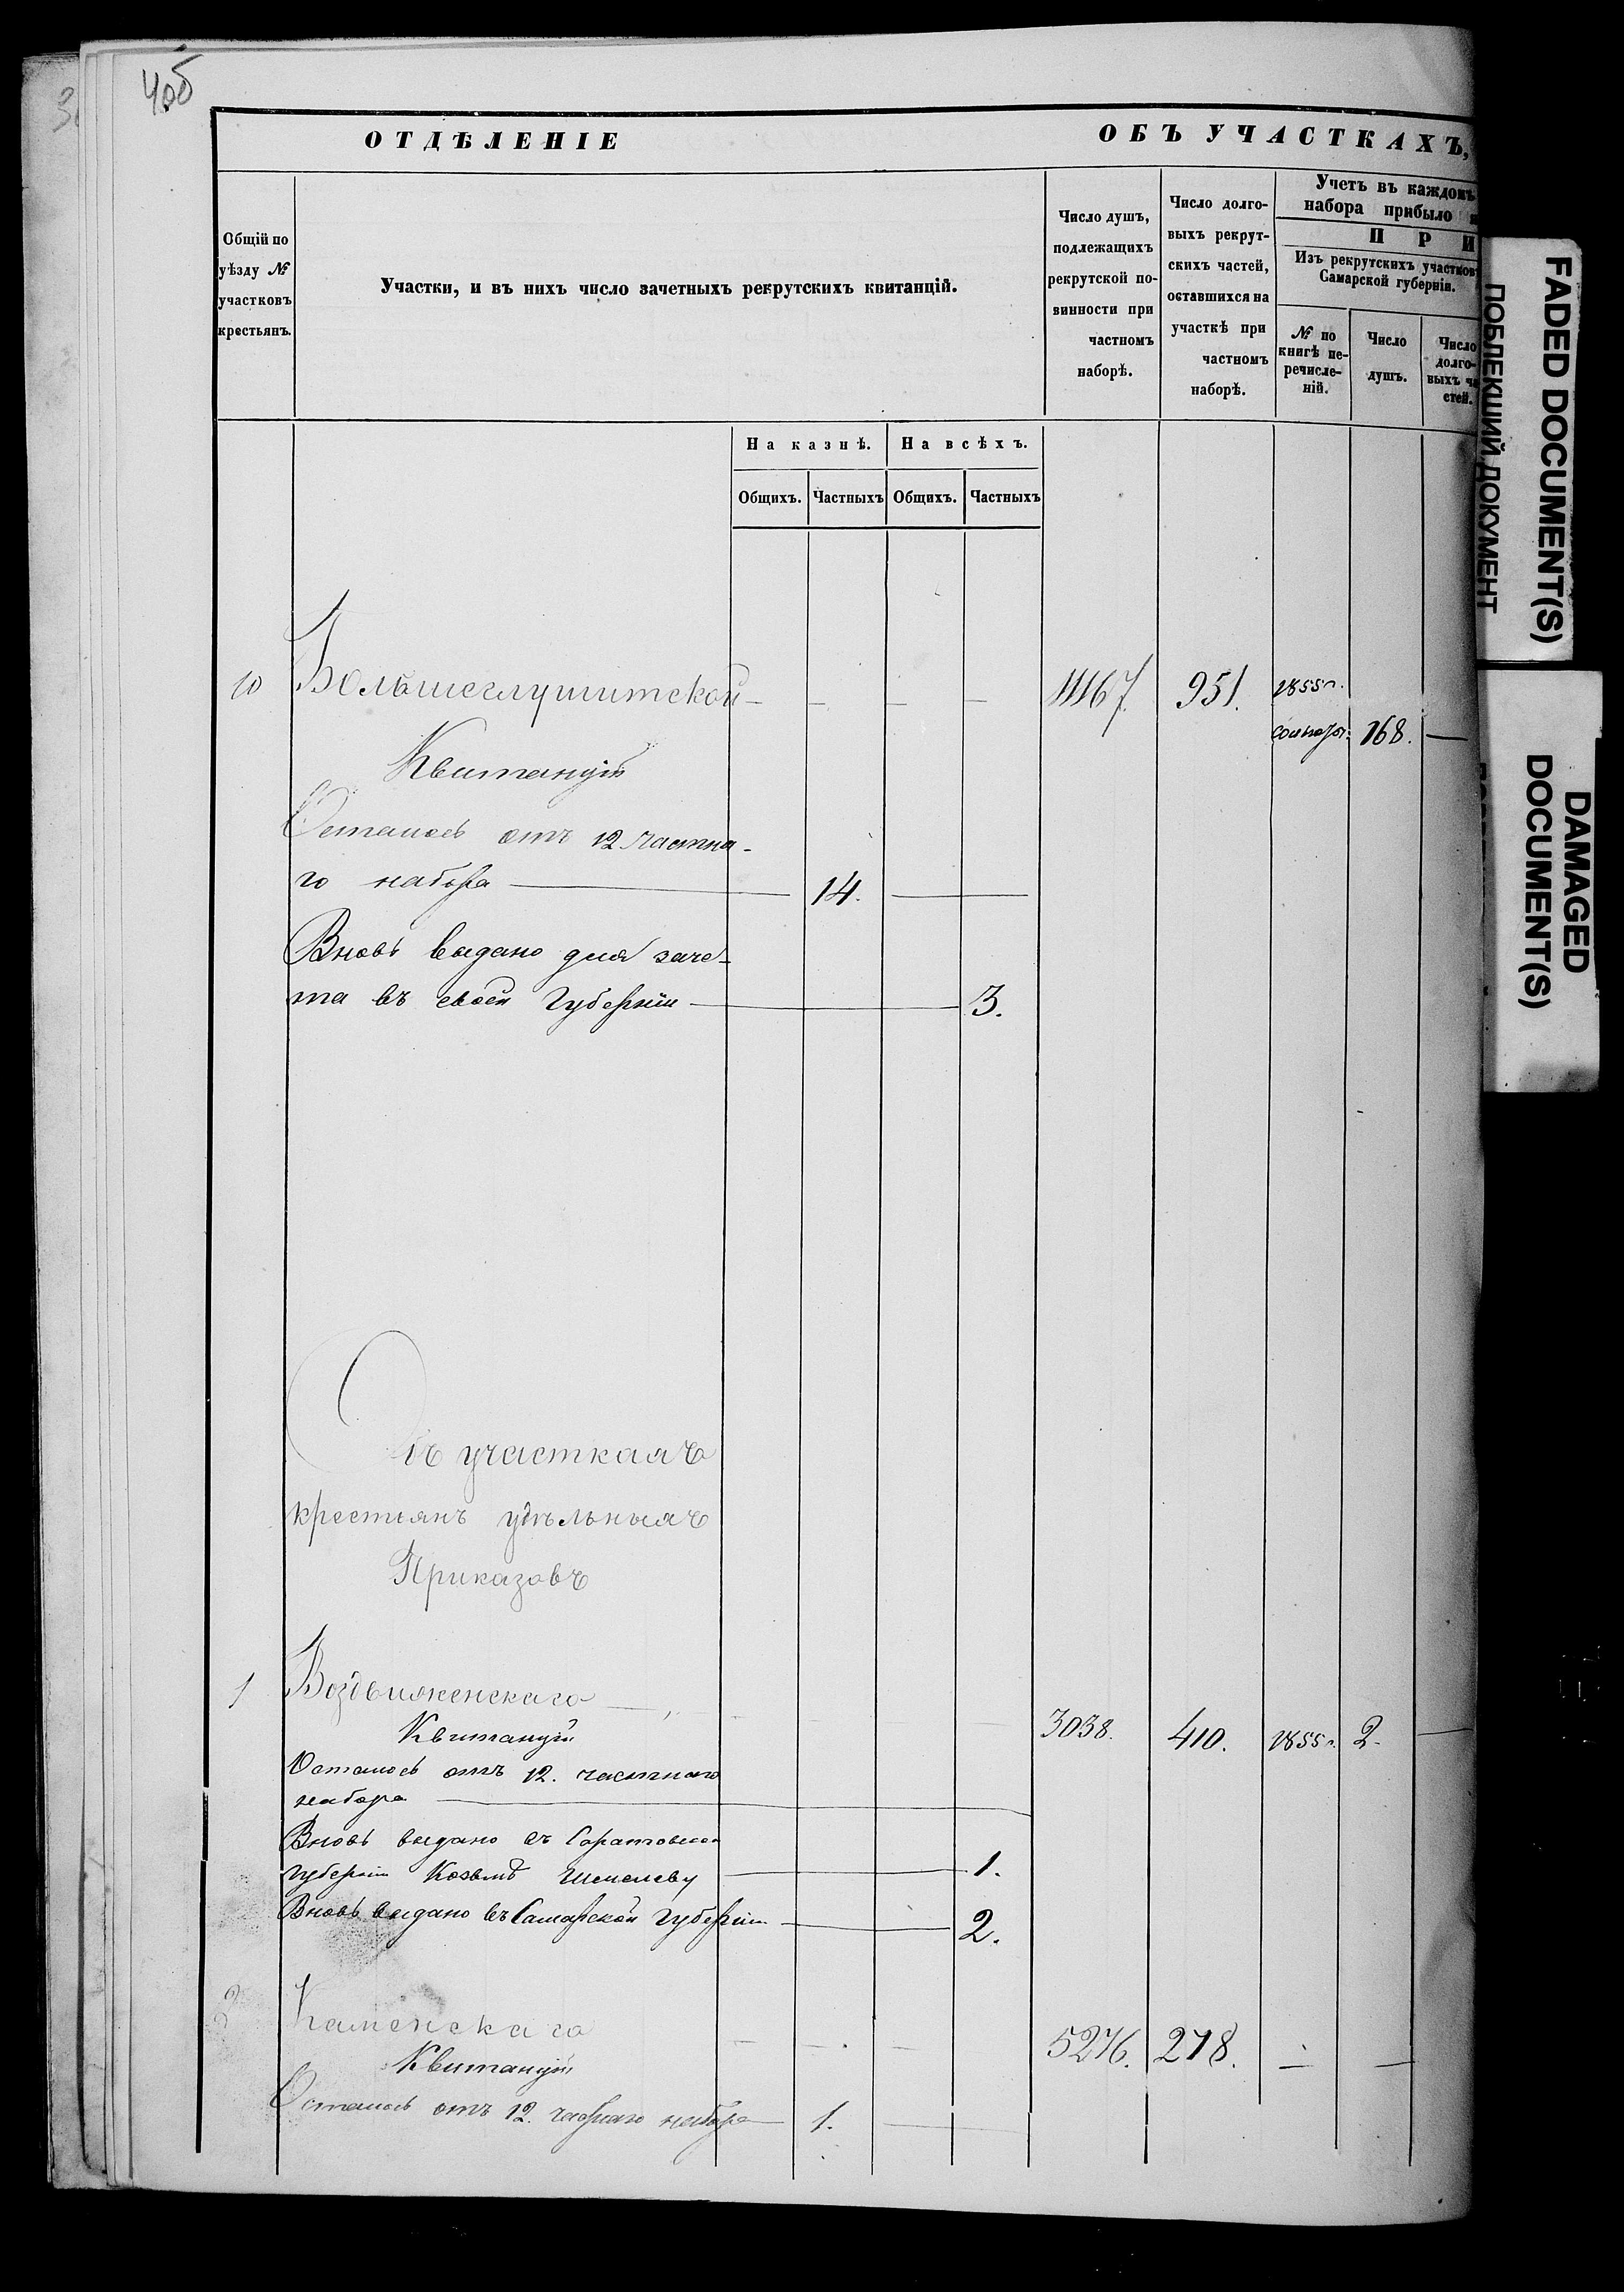 4об
ОТДѢЛЕНІЕ ОБЪ УЧАСТКАХЪ,
Общій по уѣзду № участковъ крестьянъ.
Участки, и въ нихъ число зачетныхъ рекрутскихъ квитанцій.
Число душъ, подлежащихъ рекрутской повинности при частномъ наборѣ.
Число долговыхъ рекрутскихъ частей, оставшихся на участкѣ при частномъ наборѣ.
Учетъ въ каждомъ
набора прибыло
ПРИ
Изъ рекрутскихъ участковъ
Самарской губерніи.
№ по книгѣ перечисленій.
Число душъ.
Число долговыхъ частей.
На казнѣ. На всѣхъ.
Общихъ. Частныхъ Общихъ. Частныхъ
10 Большеглушитской - - - - 11167. 951. 1855 г.
168. —
Квитанцій
Осталось отъ 12 частна-
го набора — 14. —
Вновь выдано для заче-
та въ своей Губерніи — 3.
Объ участкахъ
крестьянъ удѣльныхъ
Приказовъ
1 Воздвиженскаго — 3038. 410. 1855 г. 2. —
Квитанцій
Осталось отъ 12. частнаго
набора —
Вновь выдано въ Саратовской
губерніи Козьмѣ Шмелеву — 1.
Вновь выдано въ Самарской Губерніи — 2.
2 Каменскаго - - - 5276. 278. — —
Квитанцій
Осталось отъ 12. частнаго набора — 1. —
FADED DOCUMENT(S)
ПОБЛЕКШИЙ ДОКУМЕНТ
DAMAGED
DOCUMENT(S)